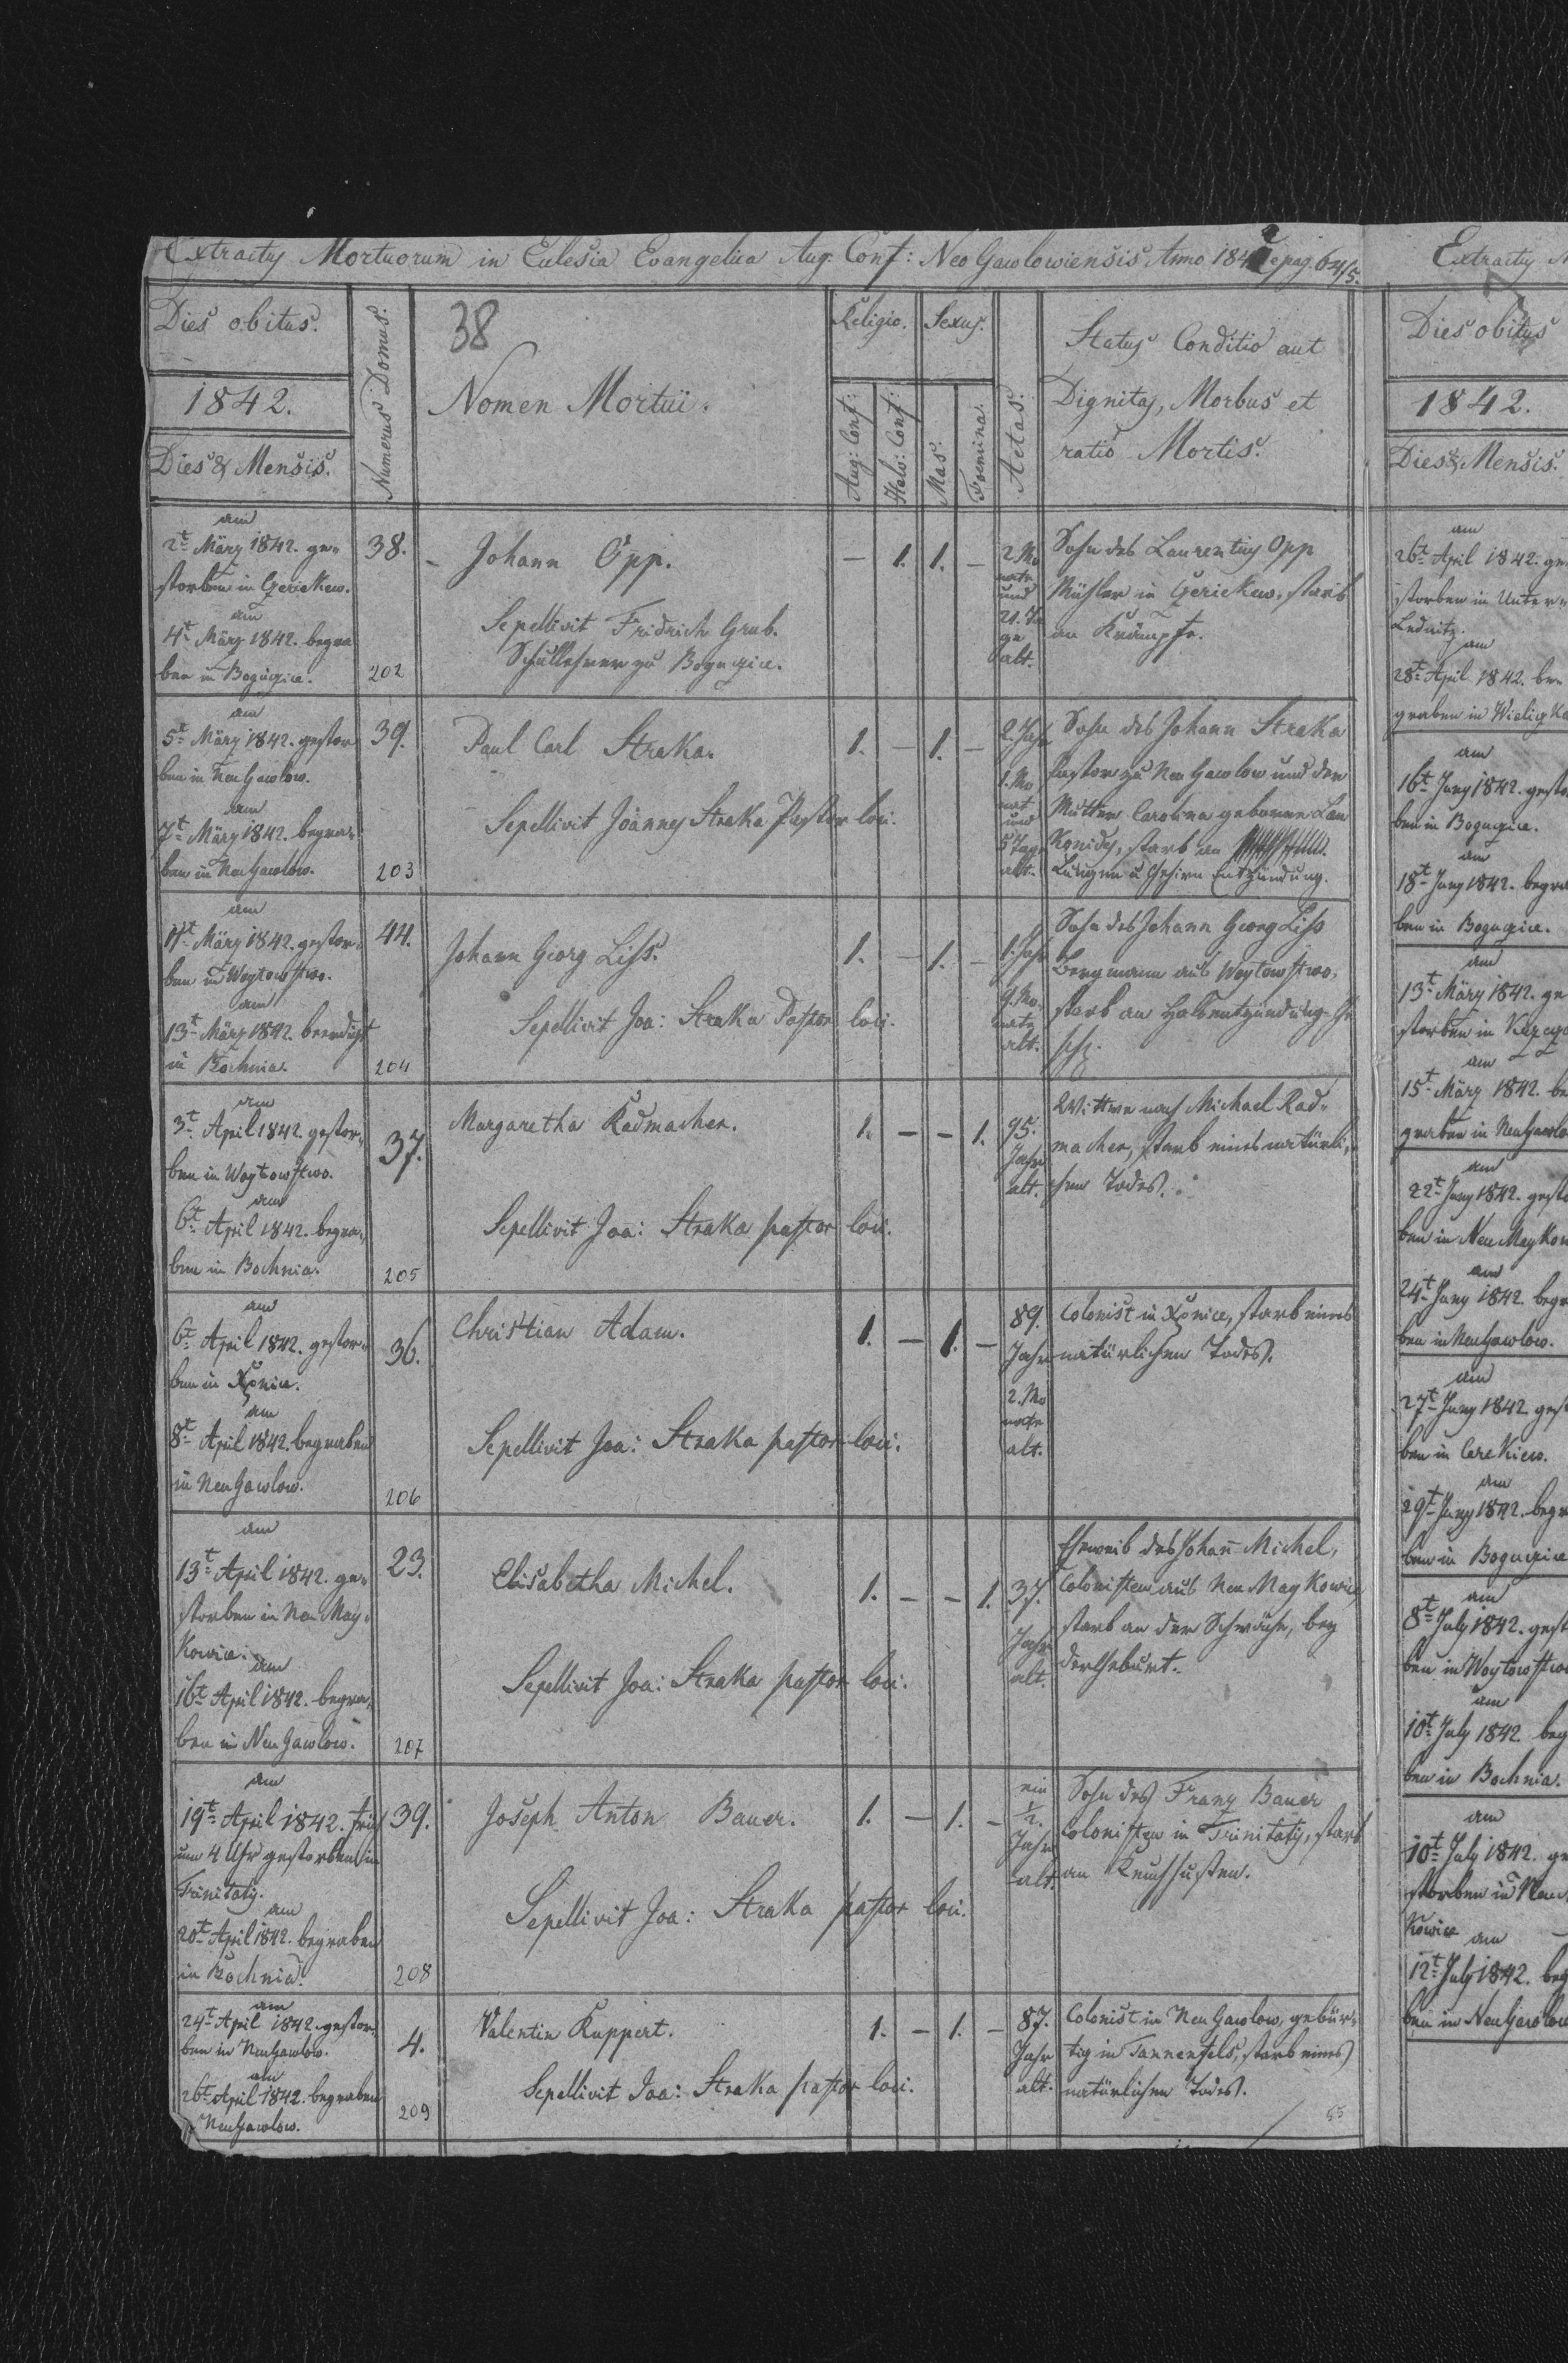 Extractus Mortuorum in Eclesia Evangelica Aug. Conf: Neo Gawlowiensis Anno 1842 e pag. 64/5.
Dies obitus.
1842.
Dies & Mensis.
Numerus Domus.
38
Nomen Mortui.
Religio.
Aug: Conf:
Helv: Conf:
Sexus.
Mas.
Foemina.
Aetas.
Status Conditio aut
Dignitas, Morbus et
ratio Mortis.
am
2t März 1842. ge-
storben in Gerickew.
am
4t März 1842. begra
ben in Bogucice.
38.
202
Johann Opp.
Sepellivit Fridrich Grub.
Schullehrer zu Bogucice.
— 1. 1. —
2. Mo
nate
und
21. Ta
ge
alt.
Sohn des Laurentius Opp
Müller in Gerickew, starb
an Krämpfe.
am
5t März 1842. gestor
ben in Neu Gawlow.
am
7t März 1842. begra-
ben in Neu Gawlow.
39.
203
Paul Carl Straka.
Sepellivit Joannes Straka Pastor loci.
1. — 1. —
2 Jahr
1. Mo
nat
und
5 Tage
alt.
Sohn des Johann Straka
Pastor zu Neu Gawlow und der
Mutter Carolina geborene Lau
Konides, starb an
Lungen u Gehirn Entzündung.
am
11t März 1842. gestor-
ben in Woytowstwo.
am
13t März 1842. beerdigt
in Bochnia.
44.
204
Johann Georg Liss.
Sepellivit Joa: Straka Pastor loci.
1. — 1. —
1. Jahr
9. Mo.
nate
alt.
Sohn des Johann Georg Liss
Bergmann aus Woytowstwo,
starb an Halsentzündung
am
3t April 1842. gestor-
ben in Woytowstwo.
am
6t April 1842. begra-
ben in Bochnia.
37.
205
Margaretha Radmacher.
Sepellivit Joa: Straka pastor loci.
1. — — 1.
95.
Jahr
alt.
Wittwe nach Michael Rad-
macher, starb eines natürli-
chen Todes.
am
6t April 1842. gestor-
ben in Xonice.
am
8t April 1842. begraben
in Neu Gawlow.
36.
206
Christian Adam.
Sepellivit Joa: Straka pastor loci.
1. — 1. —
89.
Jahr
2. Mo
nate
alt.
Colonist in Xonice, starb eines
natürlichen Todes.
am
13t April 1842. ge-
storben in Neu May-
kowice.
am
16t April 1842. begra-
ben in Neu Gawlow.
23.
207
Elisabetha Michel.
Sepellivit Joa: Straka pastor loci.
1. — — 1.
37.
Jahr
alt.
Eheweib des Johañ Michel,
Colonisten aus Neu Maykowice
starb an der Schwäche, bey
der Geburt.
am
19t April 1842. früh
um 4 Uhr gestorben in
Trinitatis.
am
20t April 1842. begraben
in Bochnia.
39.
208
Joseph Anton Bauer.
Sepellivit Joa: Straka pastor loci.
1. — 1. —
ein
1/2.
Jahr
alt.
Sohn des Franz Bauer
Colonisten in Trinitatis, starb
an Keuchhusten.
am
24t April 1842 gestor-
ben in Neu Gawlow.
am
26t April 1842. begraben
Neu Gawlow.
4.
209
Valentin Ruppert.
Sepellivit Joa: Straka pastor loci.
1. — 1. —
87.
Jahr
alt.
Colonist in Neu Gawlow, gebür-
tig in Tannenfels, starb eines
natürlichen Todes.
55
Extractus
Dies obitus
1842.
Dies & Mensis.
am
26t April 1842. ge-
storben in Unter-
Lednitz.
am
28t April 1842. be-
graben in Wielizka
am
16t Juny 1842. gestor
ben in Bogucice.
am
18t Juny 1842. begra
ben in Bogucice.
am
13t März 1842. ge
storben in
am
15t März 1842. be
graben in Neu Gawlo
am
22t Juny 1842. gesto
ben in Neu Maykow
am
24t Juny 1842. begra
ben in Neu Gawlow.
am
27t Juny 1842 gest
ben in Cerekiew.
am
29t Juny 1842. begr
ben in Bogucice
am
8t July 1842. gest
ben in Woytowstwo
am
10t July 1842 beg
ben in Bochnia.
am
10t July 1842. ge
storben in Neu
Kowice
am
12t July 1842. beg
ben in Neu Gawlow